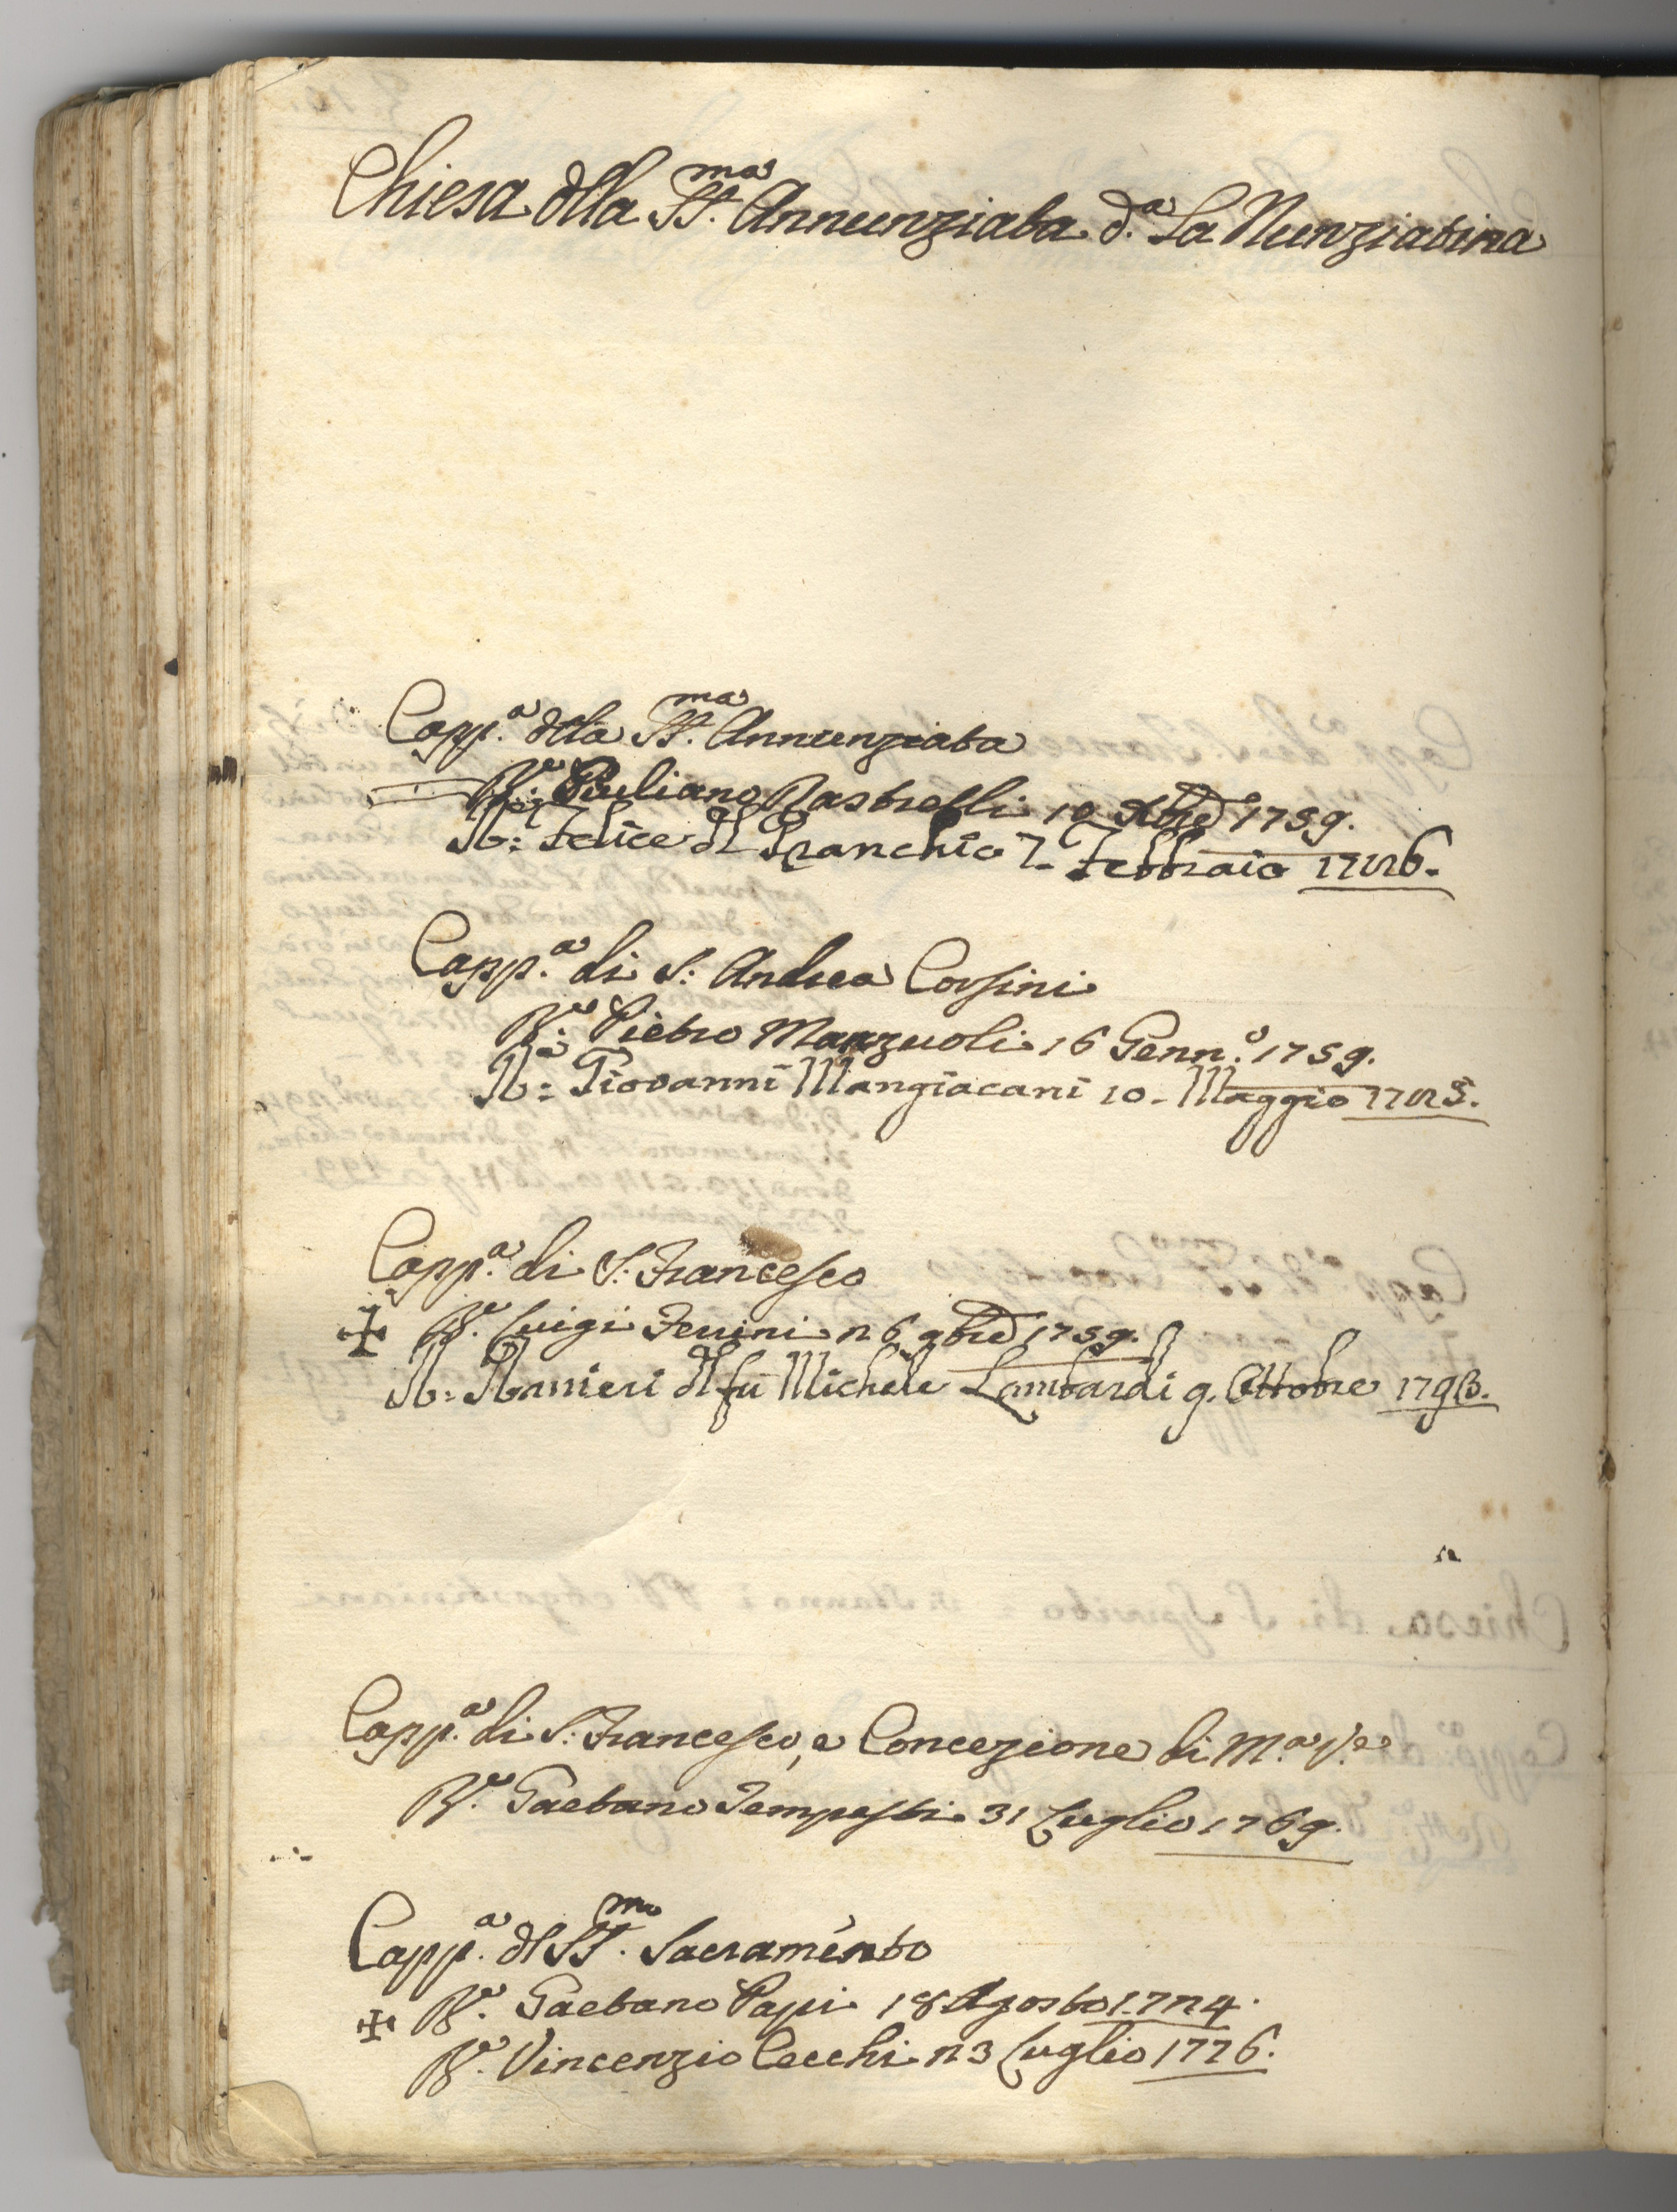 Chiesa dlla SS.ma Annunziata d.a La Nunziatina
Capp.a dlla SS.ma Annunziata
R.e Giuliano Rastrelli 10 Xbre 1759.
Felice dl Franchio 7. Febbraio
Capp.a di S: Andrea Corsini
R.e Pietro Manzuoli 16 Genn.o 1759.
Giovanni Mangiacani 10. Maggio
Capp.a di S. Francesco
✠ R.e Luigi Ferrini 26 9bre 1759.
R: Ranieri dl fù Michele Lombardi 9. Ottobre 1793.
Capp.a di S. Francesco, e Concezione di M.a V.e
R.e Gaetano Tempesti 31 Luglio 1769.
Capp.a dl SS.mo Sacramento
✠ R.e Gaetano Papi 18 Agosto 1724.
R.e Vincenzio Cecchi 23 Luglio 1776.